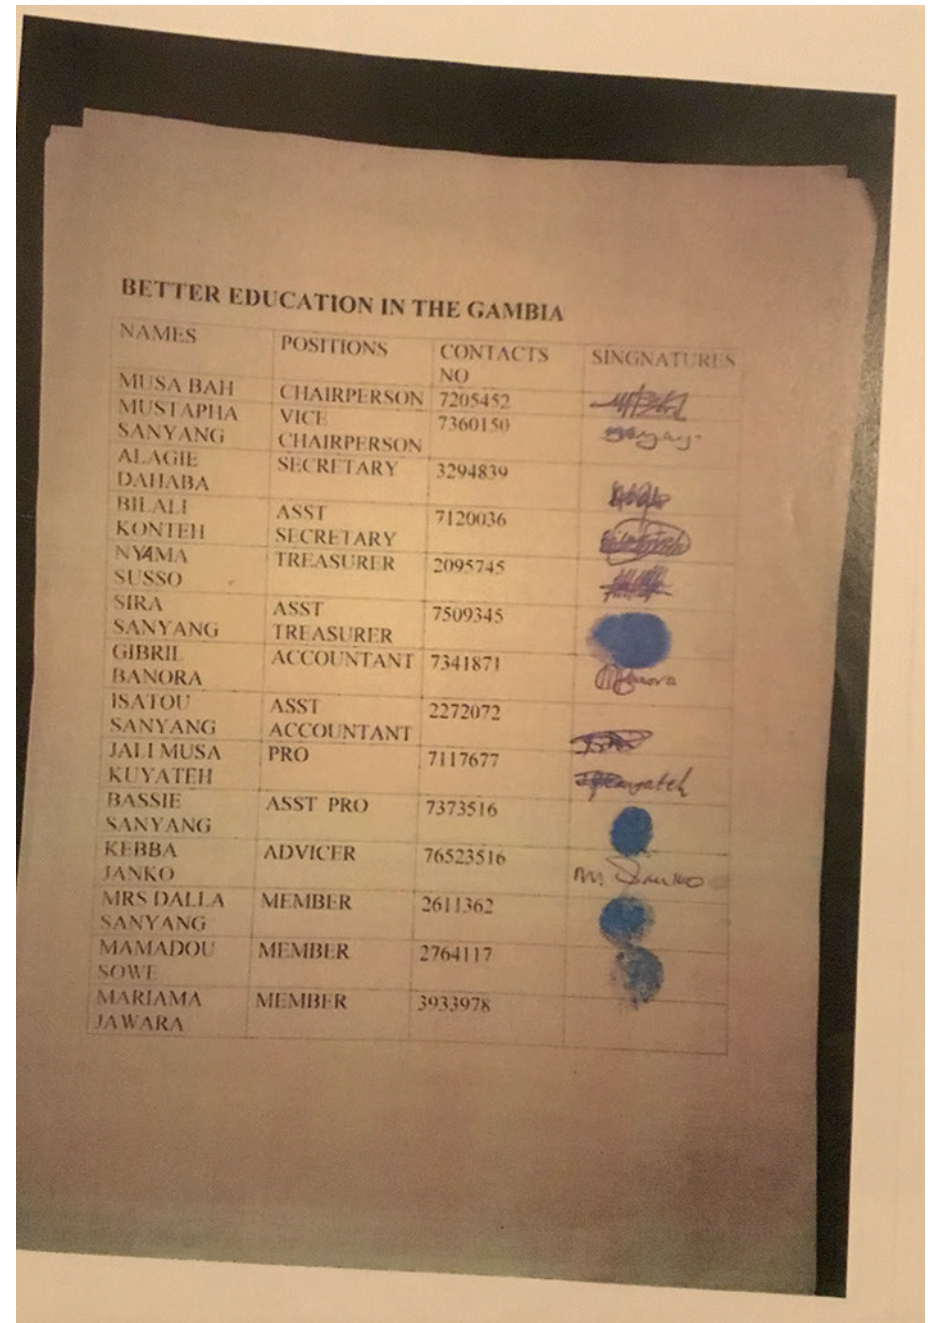 BETTER EDUCATION IN THE GAMBIA
NAMES POSITIONS CONTACTS NO SINGNATURES
MUSA BAH CHAIRPERSON 7205452
MUSTAPHA SANYANG VICE CHAIRPERSON 7360150 Sanyang
ALAGIE DAHABA SECRETARY 3294839
BILALI KONTEH ASST SECRETARY 7120036
NYAMA SUSSO TREASURER 2095745
SIRA SANYANG ASST TREASURER 7509345
GIBRIL BANORA ACCOUNTANT 7341871
ISATOU SANYANG ASST ACCOUNTANT 2272072
JALI MUSA KUYATEH PRO 7117677
BASSIE SANYANG ASST PRO 7373516
KEBBA JANKO ADVICER 76523516
MRS DALLA SANYANG MEMBER 2611362
MAMADOU SOWE MEMBER 2764117
MARIAMA JAWARA MEMBER 3933978